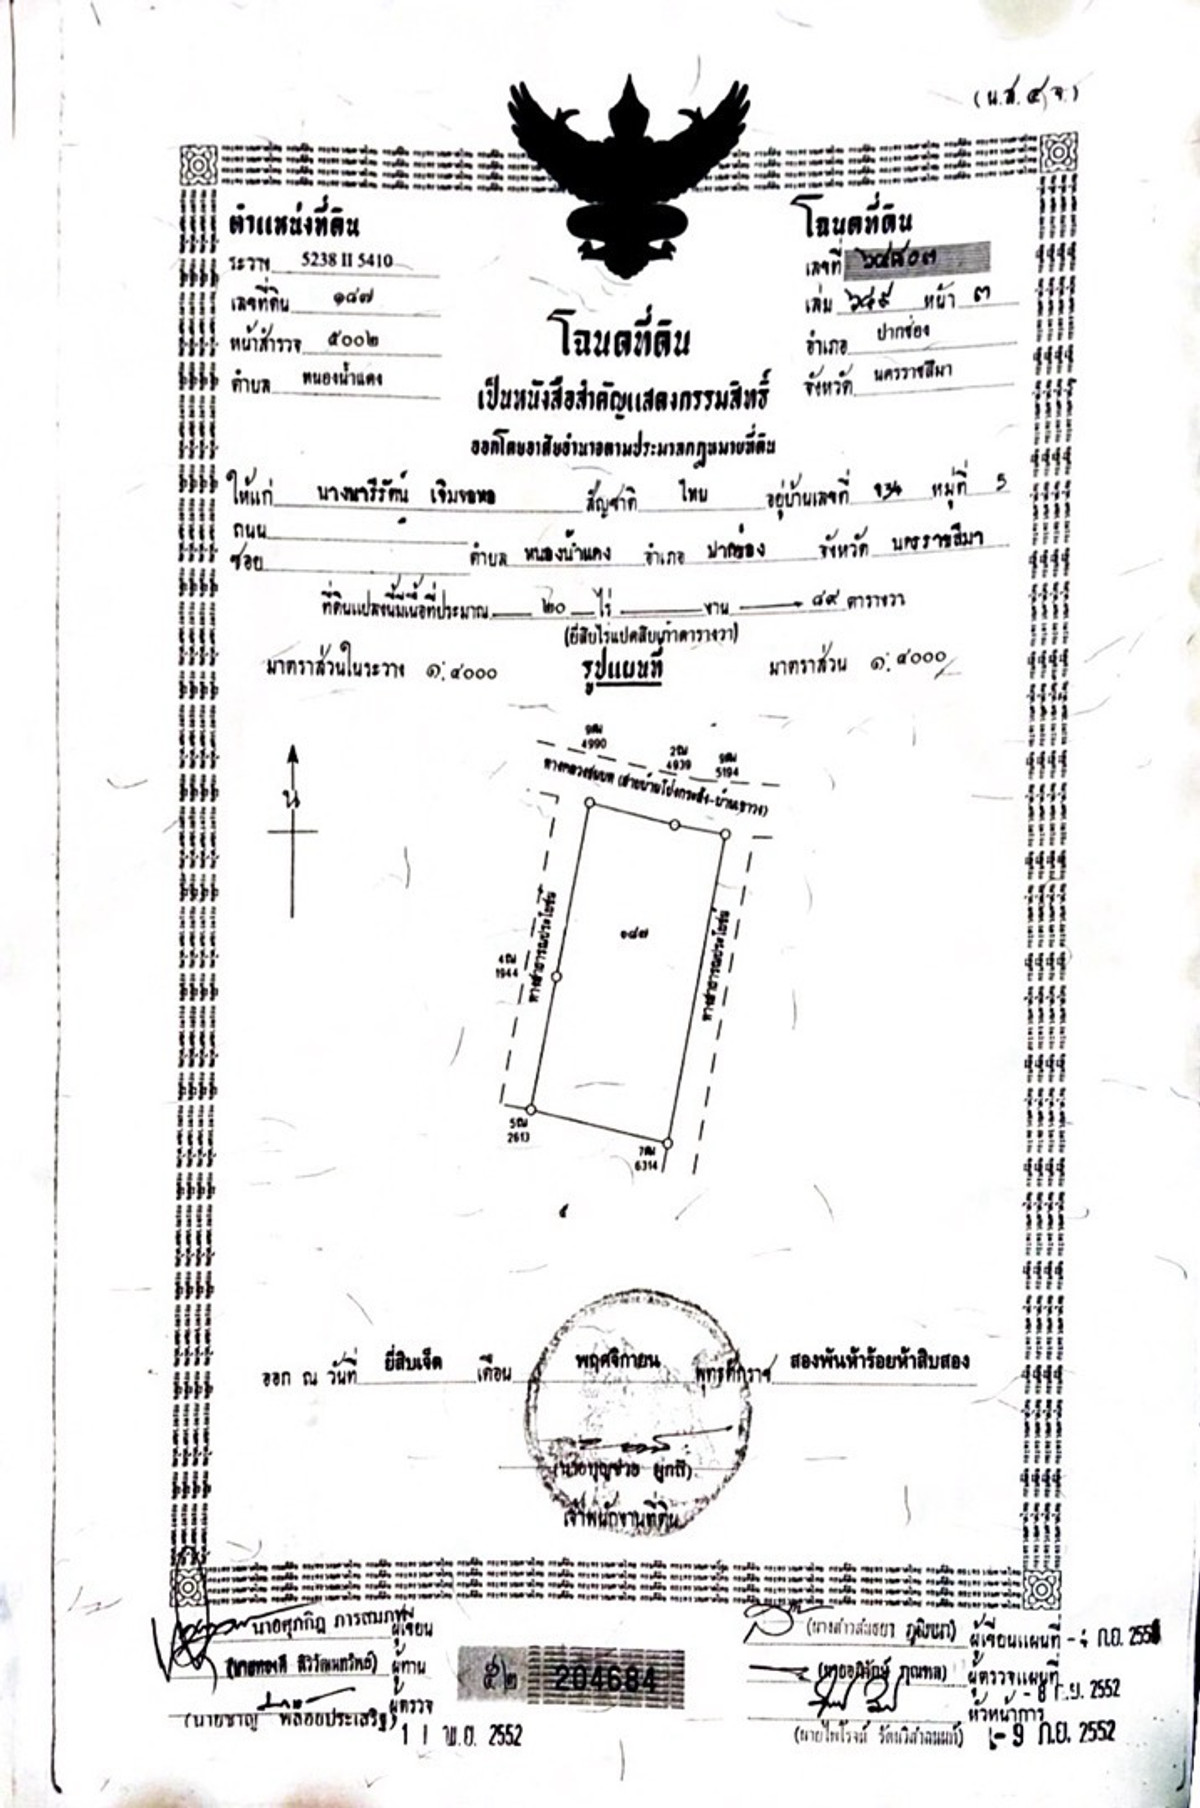 (น.ส. ๔ จ.)
ตำแหน่งที่ดิน
ระวาง 5238 II 5410
เลขที่ดิน ๑๘๗
หน้าสำรวจ ๕๐๐๒
ตำบล หนองน้ำแดง
โฉนดที่ดิน
เลขที่ ๖๔๘๐๓
เล่ม ๖๔๙ หน้า ๓
อำเภอ ปากช่อง
จังหวัด นครราชสีมา
โฉนดที่ดิน
เป็นหนังสือสำคัญแสดงกรรมสิทธิ์
ออกโดยอาศัยอำนาจตามประมวลกฎหมายที่ดิน
ให้แก่ นางนารีรัตน์ สัญชาติ ไทย อยู่บ้านเลขที่ หมู่ที่ 5
ถนน
ซอย ตำบล หนองน้ำแดง อำเภอ ปากช่อง จังหวัด นครราชสีมา
ที่ดินแปลงนี้มีเนื้อที่ประมาณ ๒๐ ไร่ งาน ๘๙ ตารางวา
(ยี่สิบไร่แปดสิบเก้าตารางวา)
มาตราส่วนในระวาง ๑:๔๐๐๐ รูปแผนที่ มาตราส่วน ๑:๔๐๐๐
4990
2ณ
4939
5194
ทางหลวงชนบท (สายบ้านโป่งกระสัง-บ้านเขาวง)
น
ทางสาธารณประโยชน์
๑๘๗
ทางสาธารณประโยชน์
4ณ
1944
5ณ
2613
6314
ออก ณ วันที่ ยี่สิบเจ็ด เดือน พฤศจิกายน พุทธศักราช สองพันห้าร้อยห้าสิบสอง
(นายบุญช่วย)
เจ้าพนักงานที่ดิน
นายศุภกิฏ ผู้เขียน
(นายทองดี สิริวัฒนทรัพย์) ผู้ทาน
ผู้ตรวจ
(นายชาญ พลอยประเสริฐ)
1 1 พ.ย. 2552
๕๒ 204684
ผู้เขียนแผนที่ - 4 ก.ย. 255
(นายอภิรักษ์) ผู้ตรวจแผนที่ - 8 ก.ย. 2552
หัวหน้าการ
(นายไพโรจน์) - 9 ก.ย. 2552